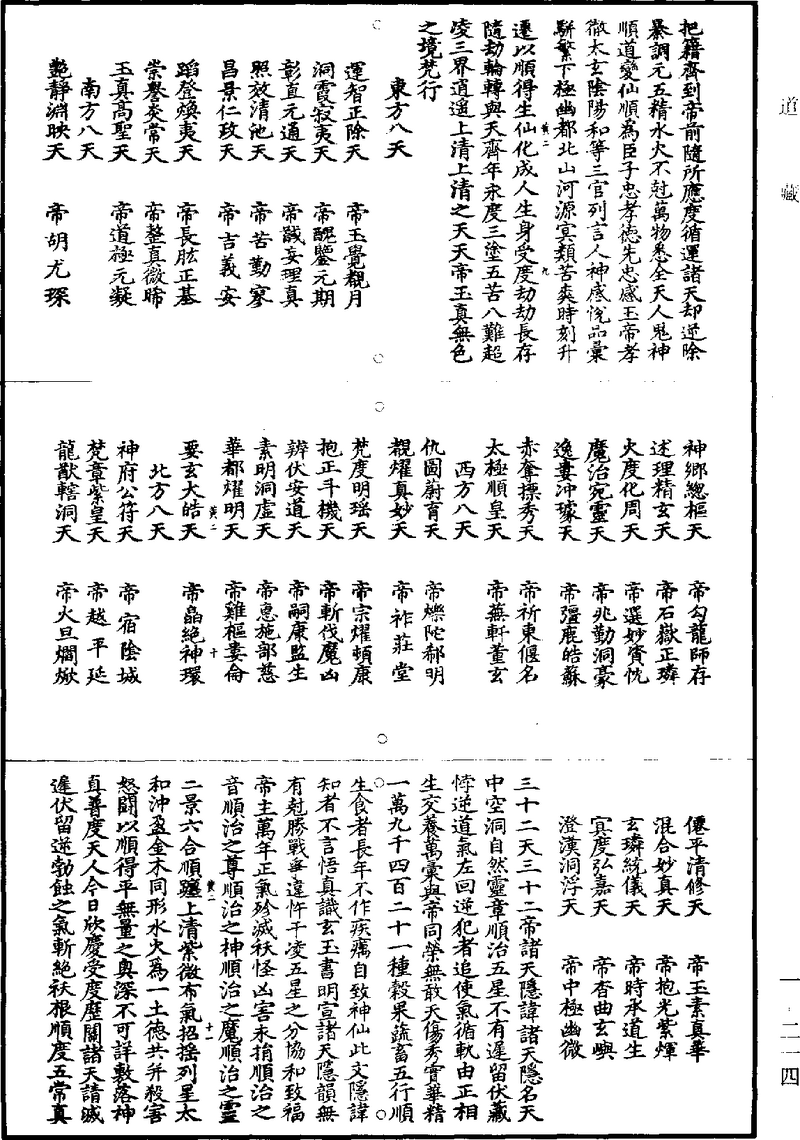 道藏
把籍齊到帝前隨所應度循運諸天却逆除
暴調元五精水火不尅萬物悉全天人鬼神
順道變仙順為臣子忠孝德先忠感玉帝孝
徹太玄陰陽和等三官列言人神感悅品彙
騈繁下極幽都北山河源冥類苦爽時刻升
遷以順得生仙化成人生身受度劫劫長存
隨劫輪轉與天齊年永度三塗五苦八難超
凌三界逍遥上清上清之天天帝玉真無色
之境梵行
東方八天
運智正除天 帝玉覺覩月
洞霞寂夷天 帝醜鑒元期
彰直元通天 帝誠妄理真
照效清池天 帝苦勤寥
昌景仁政天 帝吉義安
蹈登煥夷天 帝長肱正基
崇譽炎常天 帝整真微晞
玉真高聖天 帝道極元凝
南方八天
艶靜淵映天 帝胡尤琛
神鄉總樞天 帝勾龍師存
述理精玄天 帝石嶽正璘
火度化周天 帝選妙賓忱
魔治宛靈天 帝兆勤洞豪
逸妻沖㻯天 帝彊鹿皓蘇
赤奪摽秀天 帝祈東偃名
太極順皇天 帝蕪軒董玄
西方八天
仇圖蔚育天 帝爍陀郝明
覩燿真妙天 帝祚莊堂
梵度明瑶天 帝宗燿頓康
抱正斗機天 帝斬伐魔凶
辨伏安道天 帝嗣康監生
素明洞虛天 帝惠施部慈
華都燿明天 帝雞樞婁倫
要玄大皓天 帝皛絕神環
北方八天
神府公符天 帝宿陰城
梵章紫皇天 帝越平延
龍猷轄洞天 帝火旦爛焮
僊平清修天 帝玉素真華
混合妙真天 帝抱光紫煇
玄璘統儀天 帝時承道生
寘度弘嘉天 帝杳曲玄嶼
澄漢洞浮天 帝中極幽微
三十二天三十二帝諸天隱諱諸天隱名天
中空洞自然靈章順治五星不有遲留伏藏
悖逆道氣左回逆犯者追使氣循軌由正相
生交養萬彙與帝同榮無敢夭傷秀實華精
一萬九千四百二十一種穀果蔬畜五行順
生食者長年不作疾癘自致神仙此文隱諱
知者不言悟真識玄玉書明宣諸天隱韻無
有尅勝戰爭違忤干凌五星之分協和致福
帝主萬年正氣殄滅祆怪凶害未捐順治之
音順治之尊順治之神順治之魔順治之靈
二景六合順躔上清紫微布氣招搖列星太
和沖盈金木同形水火為一土德共并殺害
怒闘以順得平無量之奧深不可詳敷落神
真普度天人今日欣慶受度歷關諸天請滅
遲伏留逆勃蝕之氣斬絕祆根順度五常真
黃二 九
黃二 十
黃二 十一
一 二一四